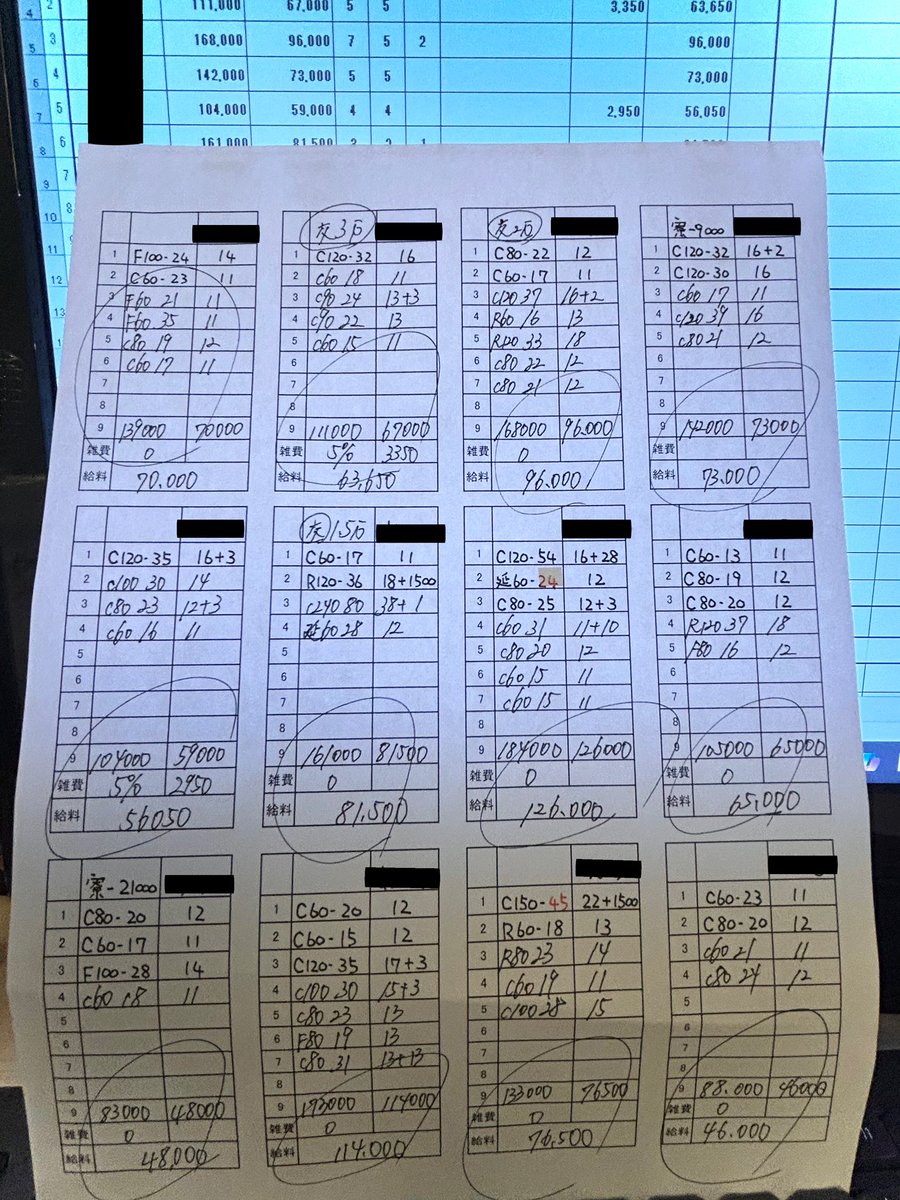 2 111,000 67,000 5 5 3,350 63,650
3 168,000 96,000 7 5 2 96,000
4 142,000 73,000 5 5 73,000
5 104,000 59,000 4 4 2,950 56,050
6 161,000 81,500
1 F100-24 14
2 C60-23 11
3 F60 21 11
4 F60 35 11
5 C80 19 12
6 C60 17 11
7
8
9 139000 70000
雑費 0
給料 70.000
友 3万
1 C120-32 16
2 C60 18 11
3 C90 24 13+3
4 C90 22 13
5 C60 15 11
6
7
8
9 111000 67000
雑費 5% 3350
給料 63,650
友 2万
1 C80-22 12
2 C60-17 11
3 C120 37 16+2
4 R60 16 13
5 R120 33 18
6 C80 22 12
7 C80 21 12
8
9 168000 96.000
雑費 0
給料 96.000
寮-9000
1 C120-32 16+2
2 C120-30 16
3 C60 17 11
4 C120 39 16
5 C80 21 12
6
7
8
9 142000 73000
雑費
給料 73.000
1 C120-35 16+3
2 C100 30 14
3 C80 23 12+3
4 C60 16 11
5
6
7
8
9 104000 59000
雑費 5% 2950
給料 56050
友 1.5万
1 C60-17 11
2 R120-36 18+1500
3 C240 80 38+1
4 延60 28 12
5
6
7
8
9 161000 81500
雑費 0
給料 81,500
1 C120-54 16+28
2 延60-24 12
3 C80-25 12+3
4 C60 31 11+10
5 C80 20 12
6 C60 15 11
7 C60 15 11
8
9 184000 126000
雑費 0
給料 126.000
1 C60-13 11
2 C80-19 12
3 C80-20 12
4 R120 37 18
5 F80 16 12
6
7
8
9 105000 65000
雑費 0
給料 65,000
寮-21000
1 C80-20 12
2 C60-17 11
3 F100-28 14
4 C60 18 11
5
6
7
8
9 83000 48000
雑費 0
給料 48,000
1 C60-20 12
2 C60-15 12
3 C120-35 17+3
4 C100 30 15+3
5 C80 23 13
6 F80 19 13
7 C80 31 13+13
8
9 193000 114000
雑費 0
給料 114.000
1 C150-45 22+1500
2 R60-18 13
3 R80 23 14
4 C60 19 11
5 C100 28 15
6
7
8
9 133000 76500
雑費 0
給料 76,500
1 C60-23 11
2 C80-20 12
3 C60 21 11
4 C80 24 12
5
6
7
8
9 88.000 46000
雑費 0
給料 46.000